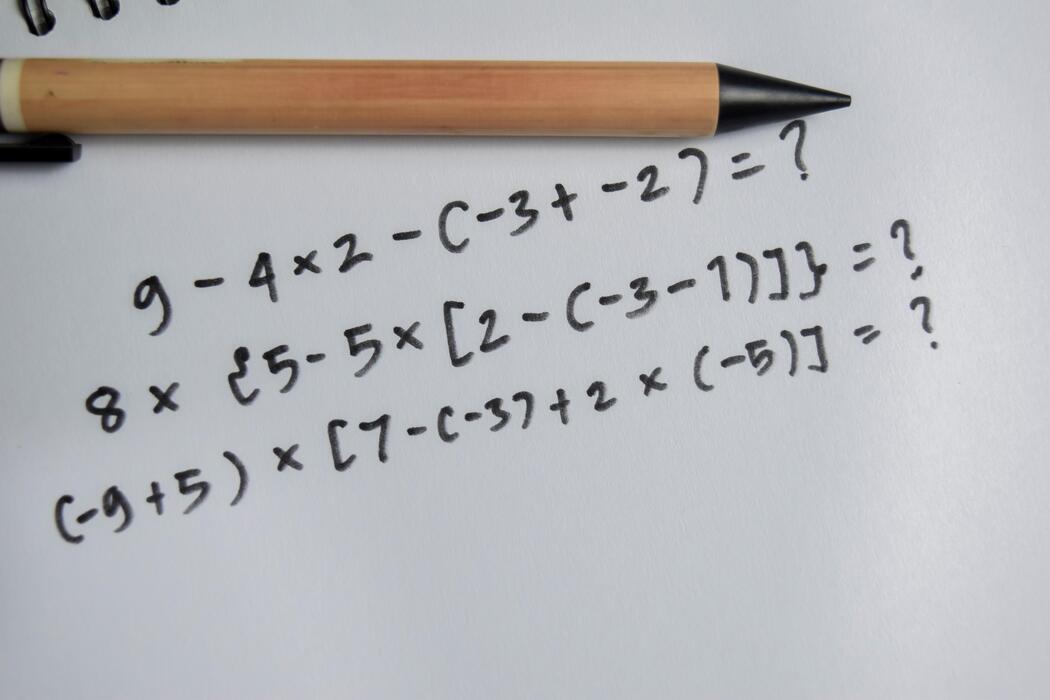 9 - 4 × 2 - (-3 + -2) = ?
8 × {5 - 5 × [2 - (-3 - 1)]} = ?
(-9 + 5) × [7 - (-3) + 2 × (-5)] = ?